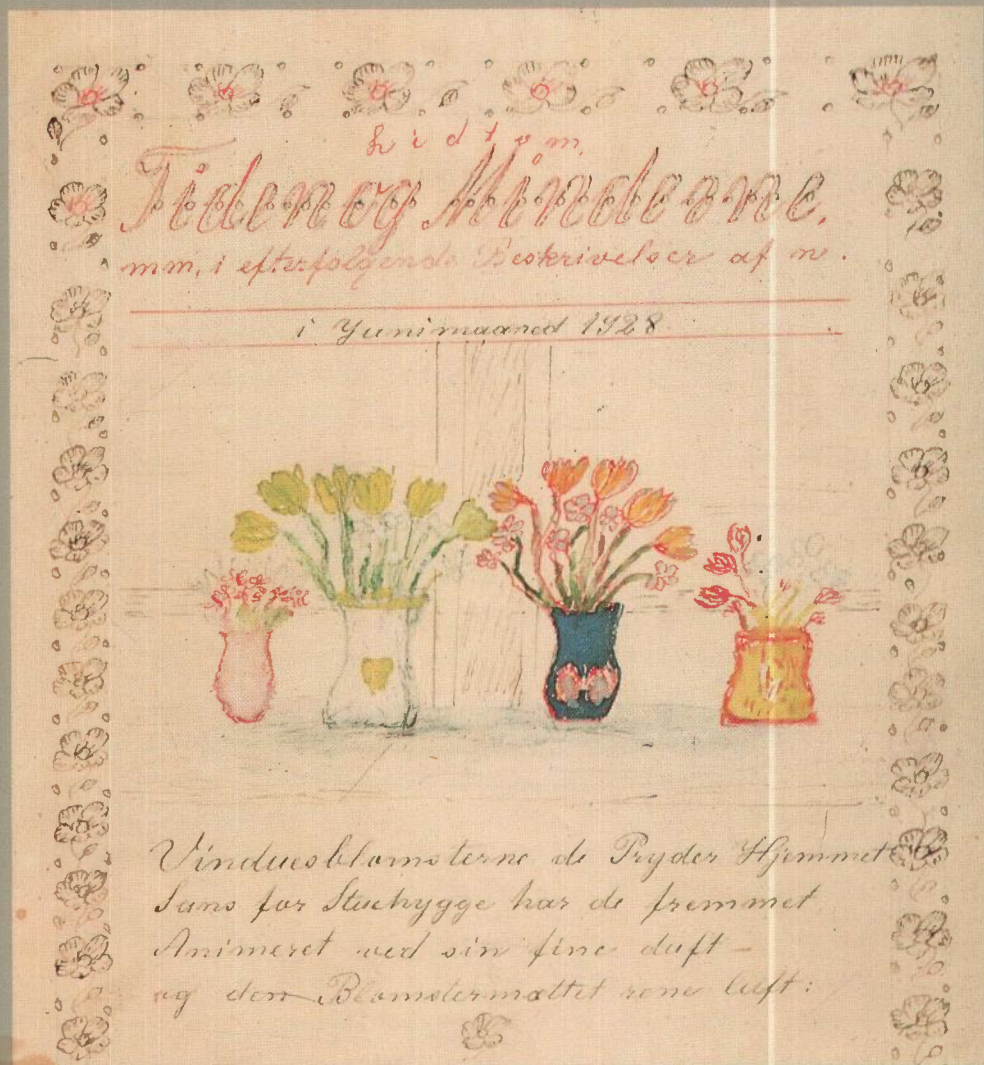 Lidt om
Tiden og Minderne.
mm, i efterfølgende Beskrivelser af n.
i Yunimaaned 1928
Vinduesblomsterne de Pryder Hjemmet
Sans for Stuehygge har de fremmet
Animeret ved sin fine duft –
og den Blomstermættet rene luft: